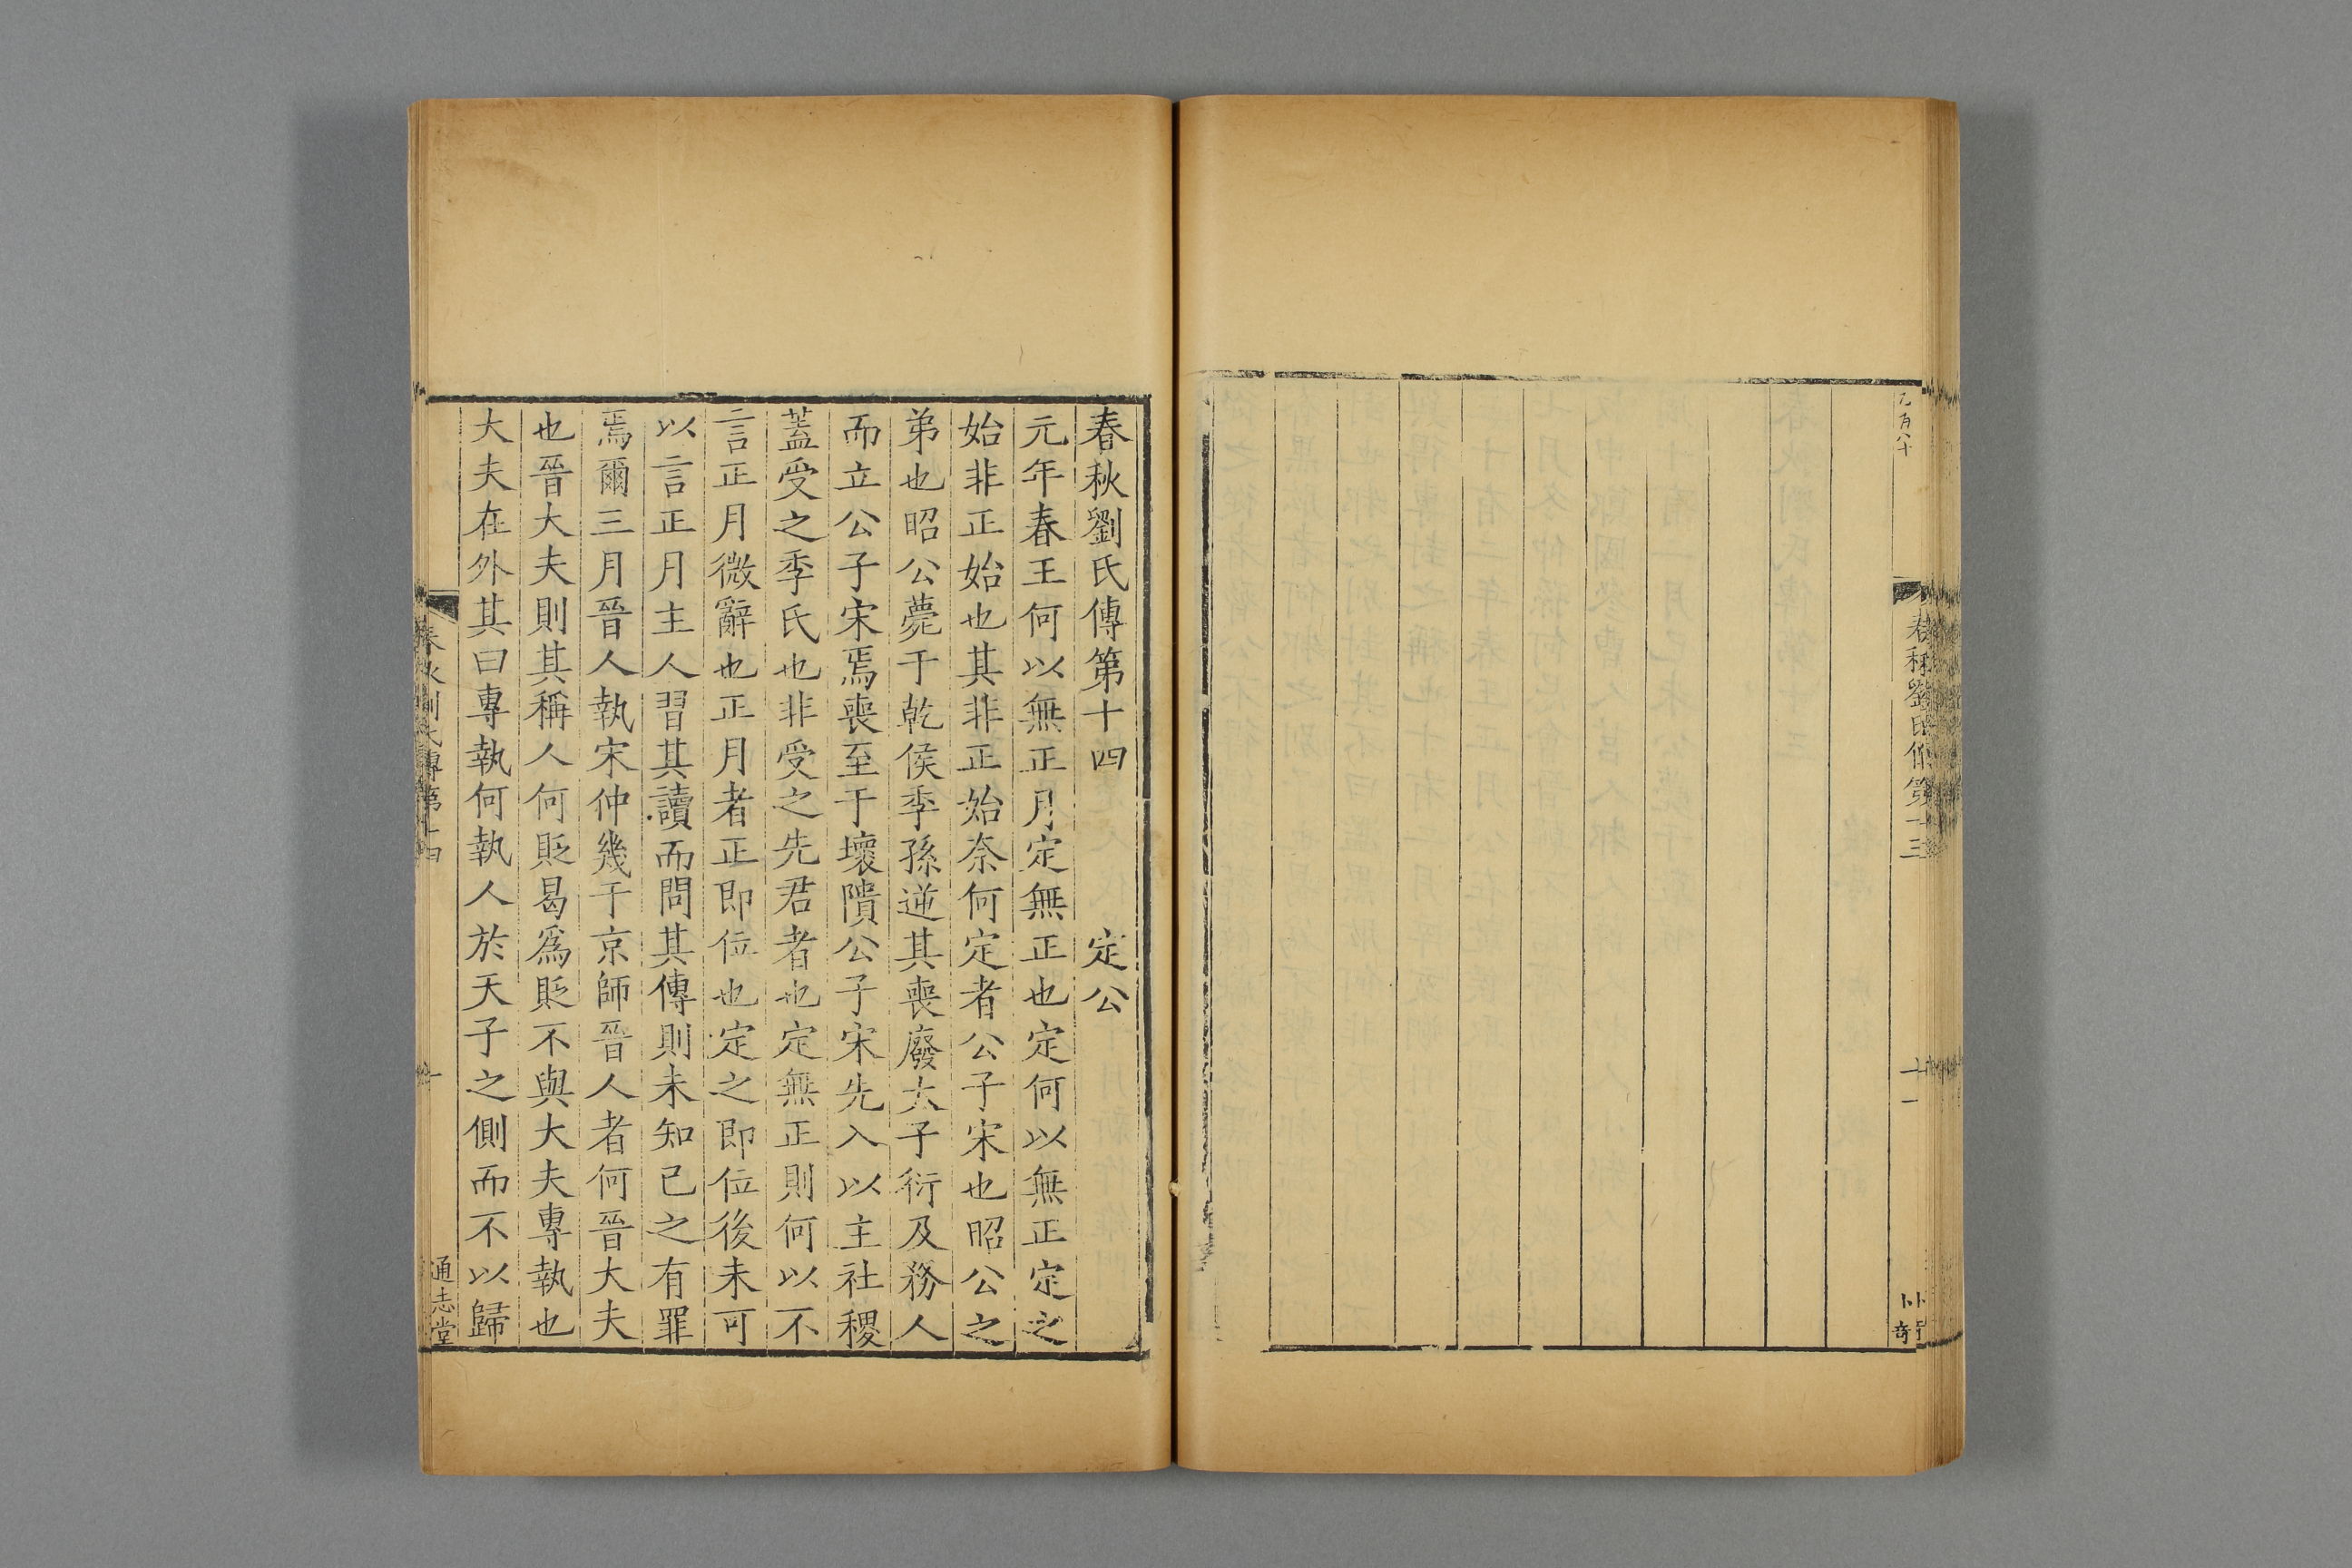 春秋劉氏傳第十三
十一
春秋劉氏傳第十四 定公
元年春王何以無正月定無正也定何以無正定之
始非正始也其非正始奈何定者公子宋也昭公之
弟也昭公薨于乾侯季孫逆其喪廢太子衍及務人
而立公子宋焉喪至于壞隤公子宋先入以主社稷
蓋受之季氏也非受之先君者也定無正則何以不
言正月微辭也正月者正即位也定之即位後未可
以言正月主人習其讀而問其傳則未知己之有罪
焉爾三月晉人執宋仲幾于京師晉人者何晉大夫
也晉大夫則其稱人何貶曷爲貶不與大夫專執也
大夫在外其曰專執何執人於天子之側而不以歸
春秋劉氏傳第十四
一
通志堂